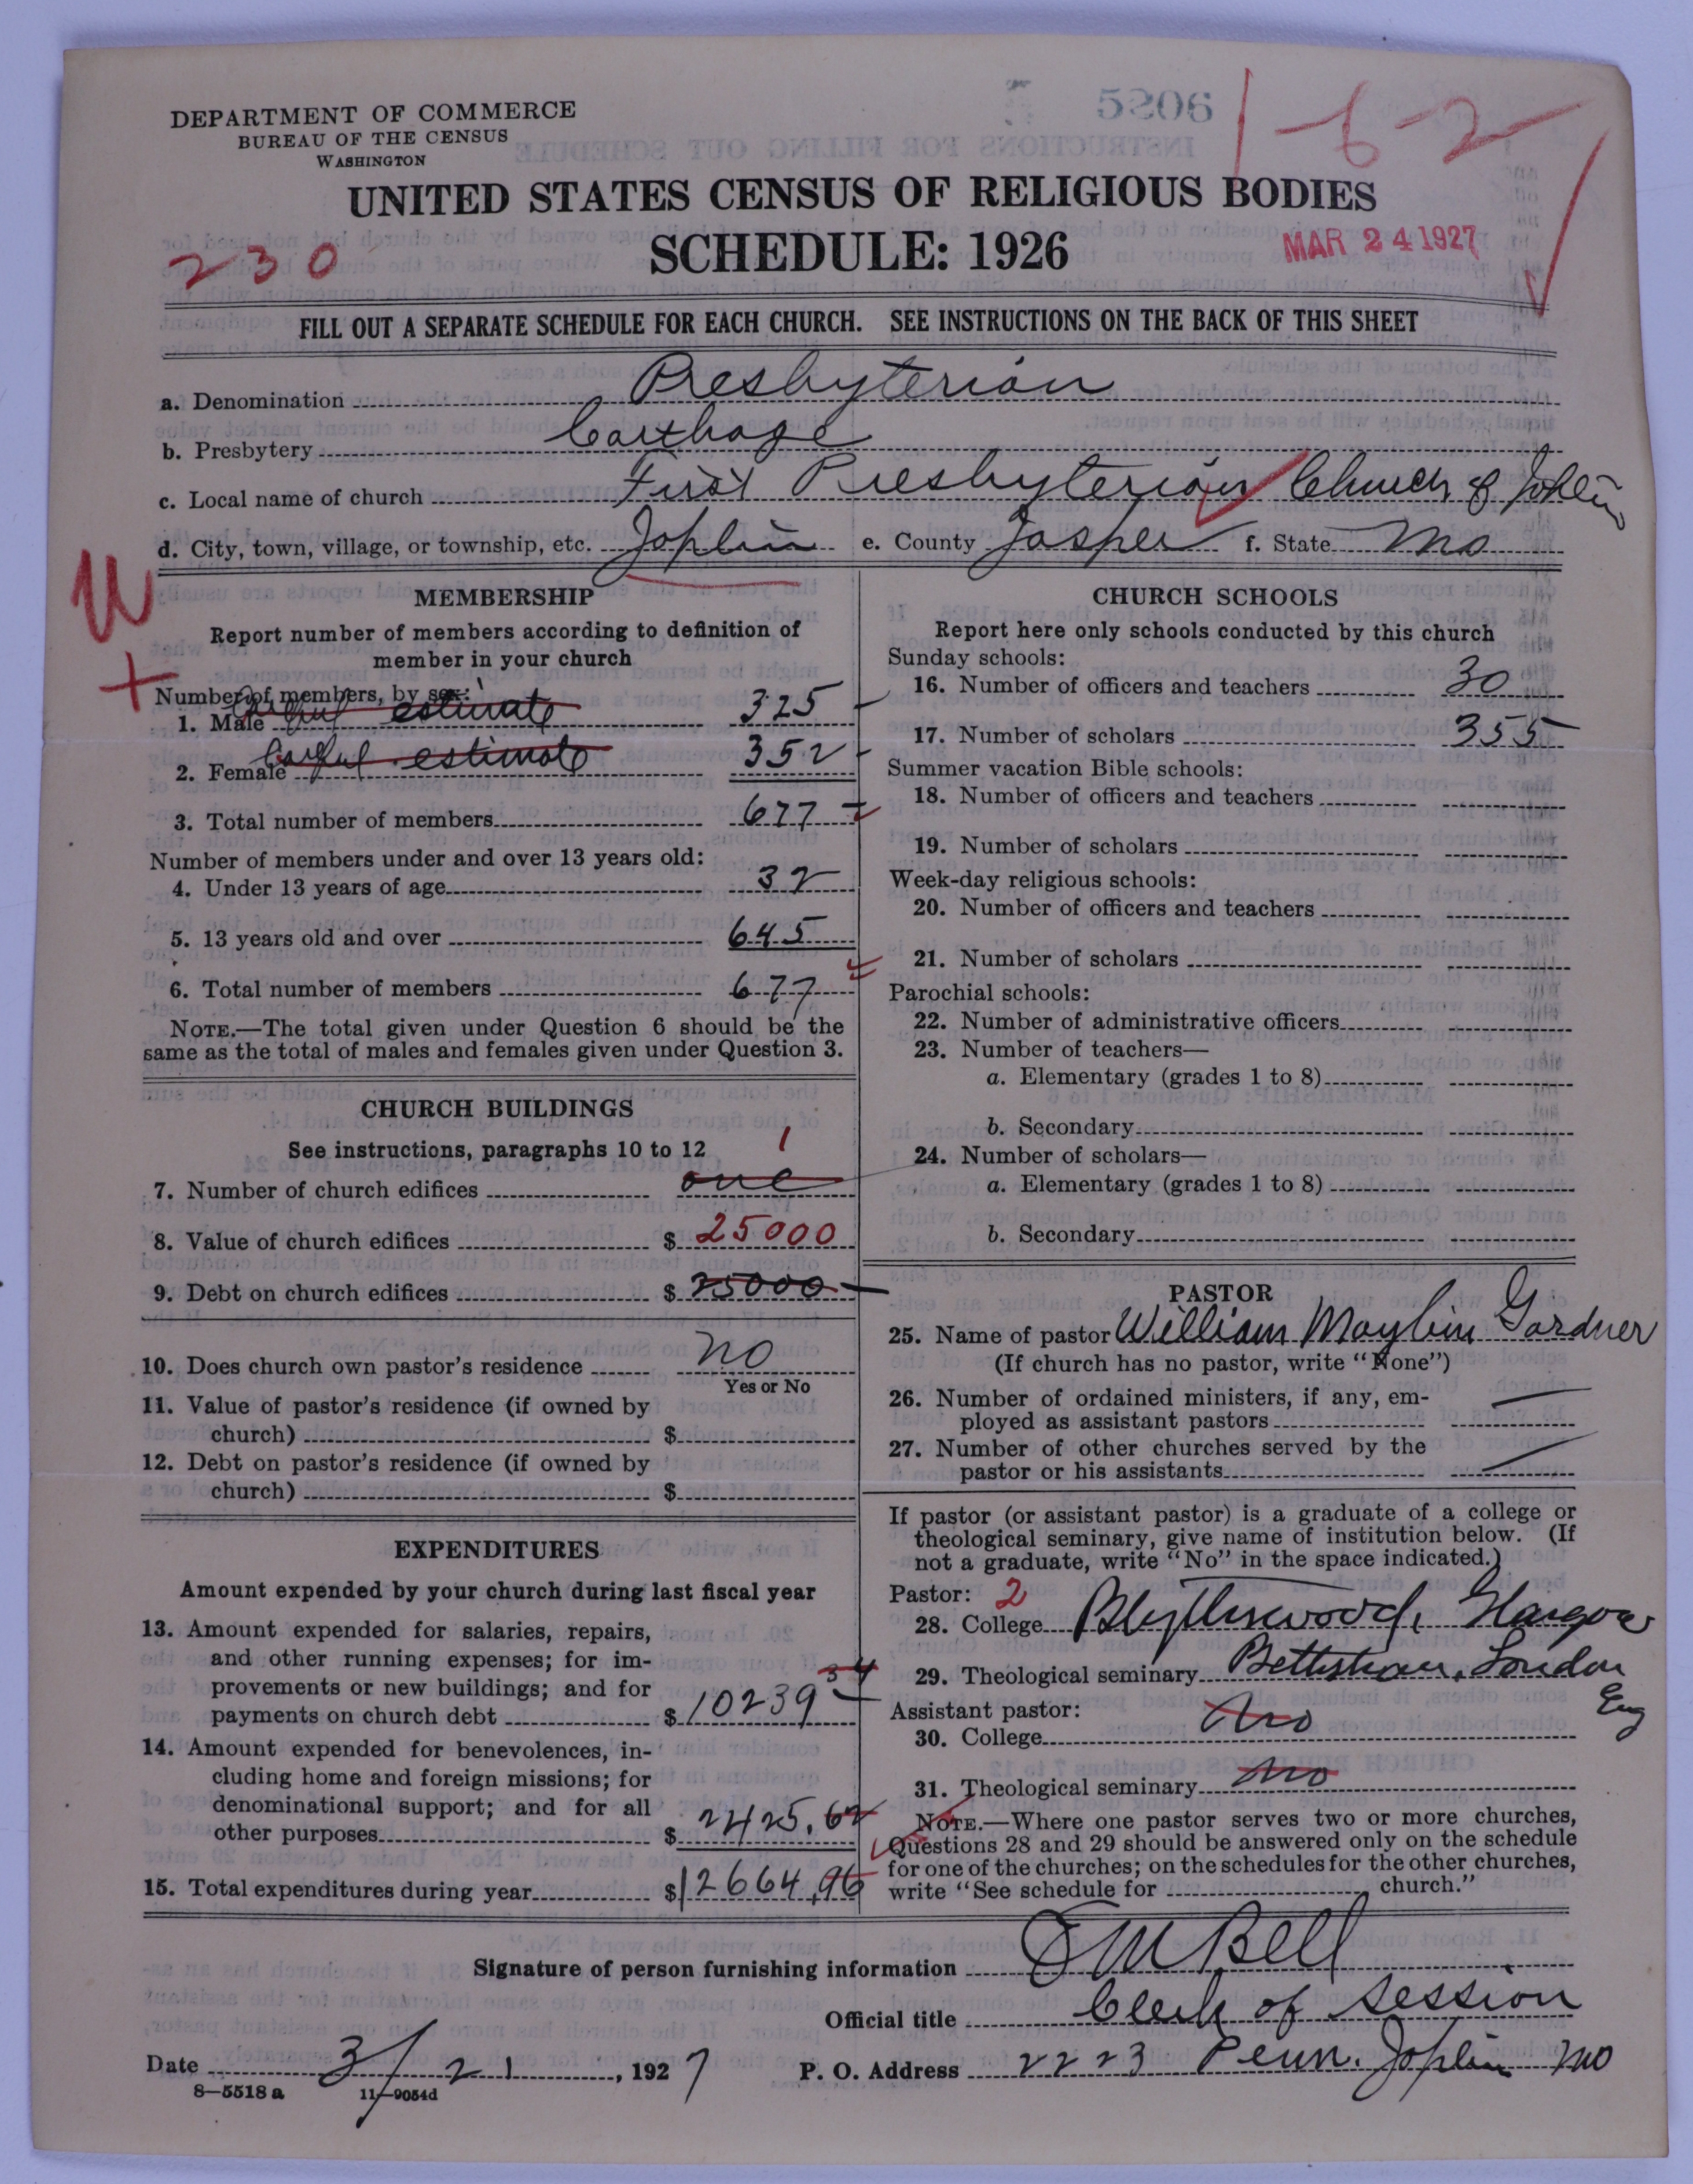 DEPARTMENT OF COMMERCE
BUREAU OF THE CENSUS
WASHINGTON
5206
1-6-2
UNITED STATES CENSUS OF RELIGIOUS BODIES
SCHEDULE: 1926
230
MAR 24 1927
FILL OUT A SEPARATE SCHEDULE FOR EACH CHURCH. SEE INSTRUCTIONS ON THE BACK OF THIS SHEET
a. Denomination Presbyterian
b. Presbytery Carthage
c. Local name of church First Presbyterian Church of Joplin
d. City, town, village, or township, etc. Joplin e. County Jasper f. State Mo
MEMBERSHIP
Report number of members according to definition of
member in your church
Number of members, by sex:
1. Male Careful estimate 325
2. Female Careful estimate 352
3. Total number of members 677
Number of members under and over 13 years old:
4. Under 13 years of age 32
5. 13 years old and over 645
6. Total number of members 677
NOTE.—The total given under Question 6 should be the
same as the total of males and females given under Question 3.
CHURCH BUILDINGS
See instructions, paragraphs 10 to 12
1
7. Number of church edifices one
8. Value of church edifices $ 25000
9. Debt on church edifices $ 25000
10. Does church own pastor's residence no
Yes or No
11. Value of pastor's residence (if owned by
church) $
12. Debt on pastor's residence (if owned by
church) $
EXPENDITURES
Amount expended by your church during last fiscal year
13. Amount expended for salaries, repairs,
and other running expenses; for im-
provements or new buildings; and for
payments on church debt $ 10239 34
14. Amount expended for benevolences, in-
cluding home and foreign missions; for
denominational support; and for all
other purposes $ 2425.62
15. Total expenditures during year $ 12664.96
CHURCH SCHOOLS
Report here only schools conducted by this church
Sunday schools:
16. Number of officers and teachers 30
17. Number of scholars 355
Summer vacation Bible schools:
18. Number of officers and teachers
19. Number of scholars
Week-day religious schools:
20. Number of officers and teachers
21. Number of scholars
Parochial schools:
22. Number of administrative officers
23. Number of teachers—
a. Elementary (grades 1 to 8)
b. Secondary
24. Number of scholars—
a. Elementary (grades 1 to 8)
b. Secondary
PASTOR
25. Name of pastor William Maylin Gardner
(If church has no pastor, write "None")
26. Number of ordained ministers, if any, em-
ployed as assistant pastors
27. Number of other churches served by the
pastor or his assistants
If pastor (or assistant pastor) is a graduate of a college or
theological seminary, give name of institution below. (If
not a graduate, write "No" in the space indicated.)
Pastor: 2
28. College Blythswood, Glasgow
29. Theological seminary London
Eng
Assistant pastor:
30. College no
31. Theological seminary no
NOTE.—Where one pastor serves two or more churches,
Questions 28 and 29 should be answered only on the schedule
for one of the churches; on the schedules for the other churches,
write "See schedule for church."
Signature of person furnishing information Bell
Official title Clerk of Session
Date 3/21, 1927 P. O. Address 2223 Penn. Joplin Mo
8—5518 a 11—9054d